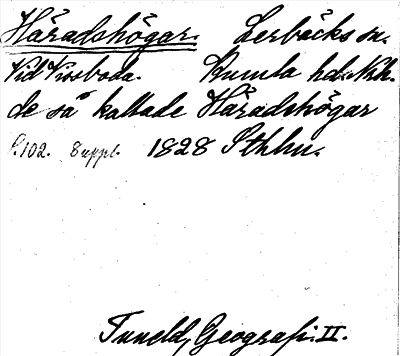 Häradshögar. Lerbäcks sn.
Vid Viseboda. Kumla hd. Nke.
de så kallade Häradshögar
S. 102. 8 uppl. 1828 Sthlm.
Tuneld, Geografi. II.